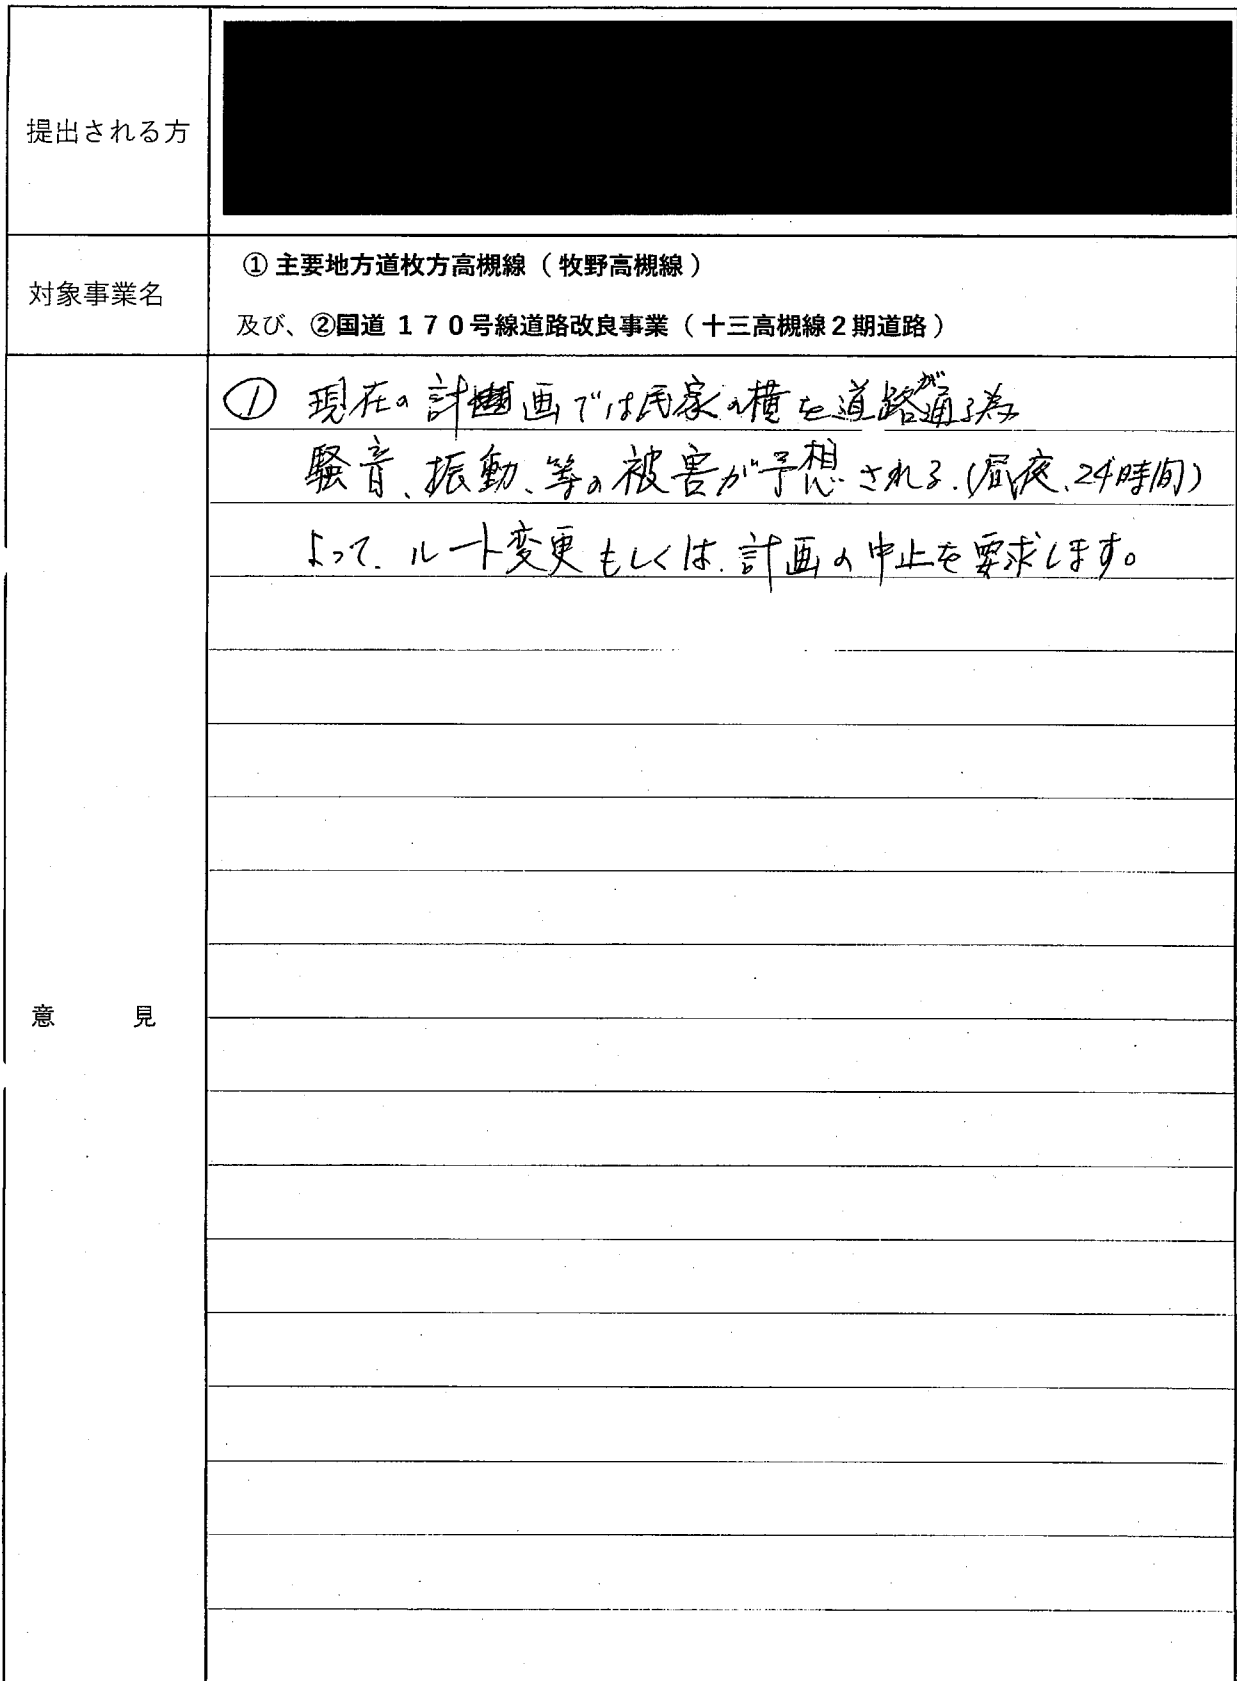 提出される方
対象事業名
①主要地方道枚方高槻線（牧野高槻線）
及び、②国道１７０号線道路改良事業（十三高槻線２期道路）
意見
① 現在の計画では民家の横を道路が通る為
騒音、振動、等の被害が予想される.(昼夜、24時間)
よって、ルート変更もしくは、計画の中止を要求します。